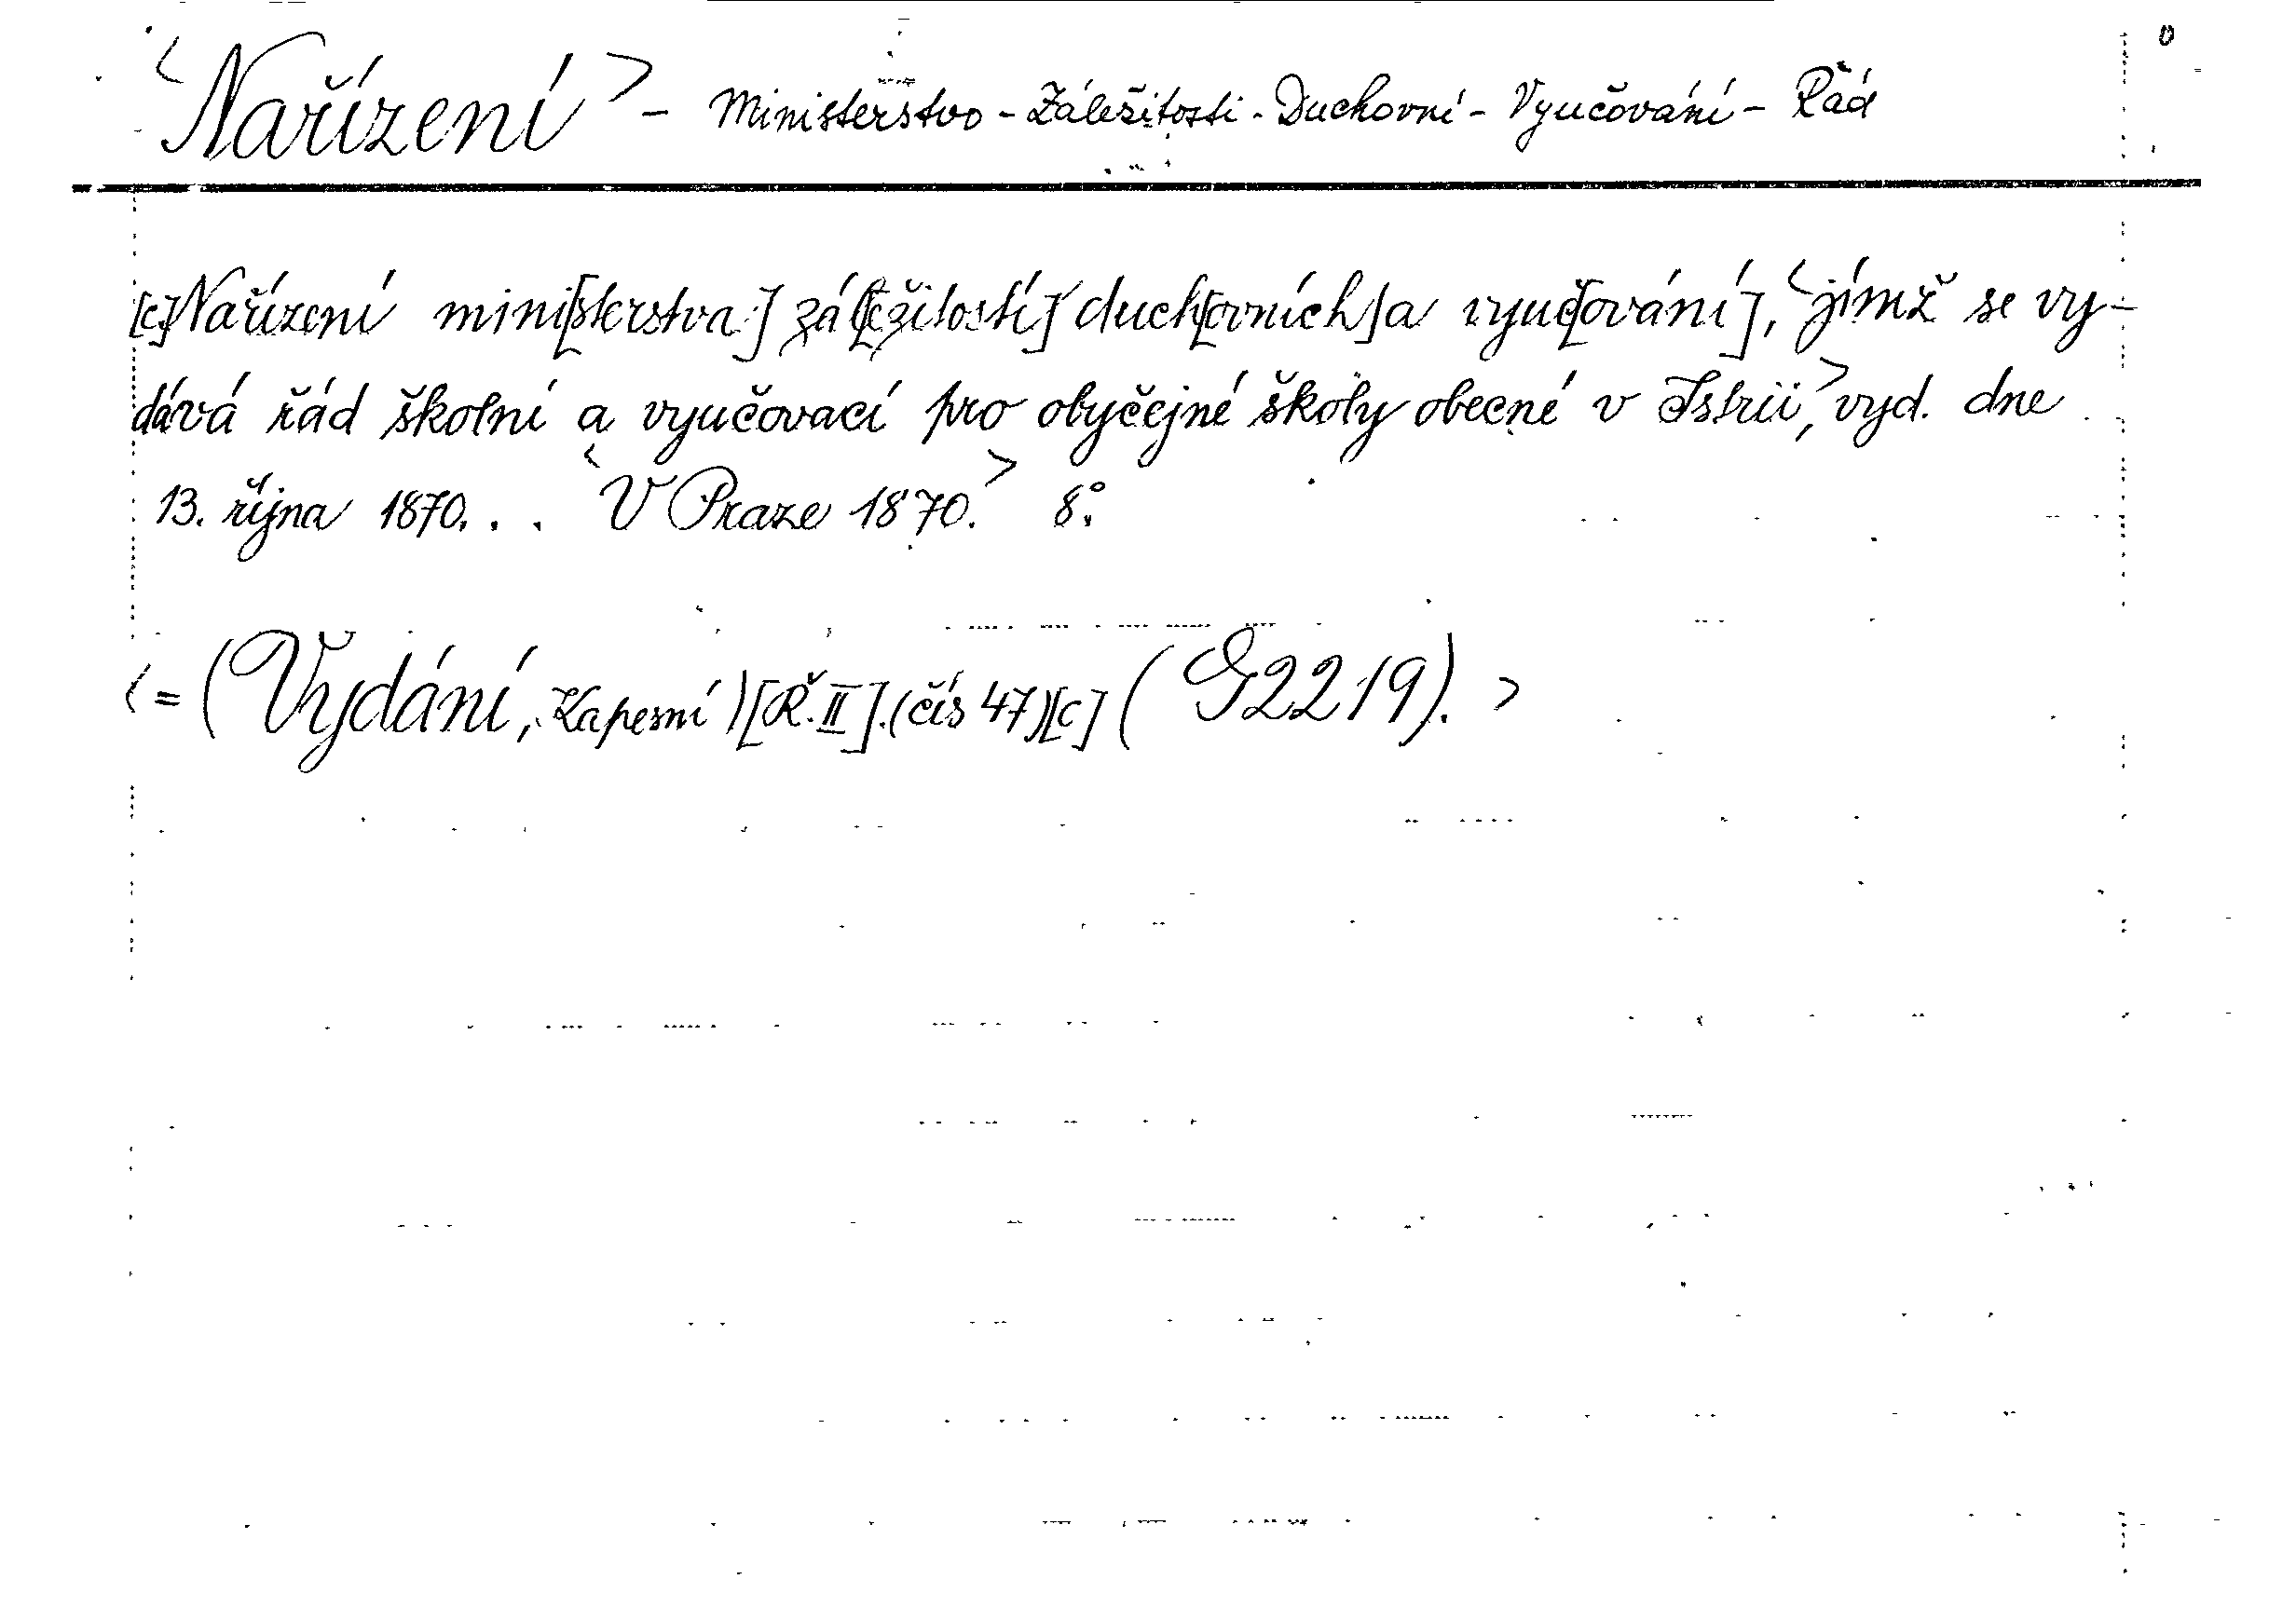 <Nařízení> - Ministerstvo - Záležitosti - Duchovní - Vyučování - Řád
[c]Nařízení mini[sterstva] zál[ežitostí] duch[ovních] a vyuč[ování], <jímž se vy-
dává řád školní a vyučovací pro obyčejné školy obecné v Istrii,> vyd. dne
13. října 1870. . . <V Praze 1870.> 8°.
<= (Vydání, Kapesní) [Ř. II]. (čís 47)[c] (G2219). >